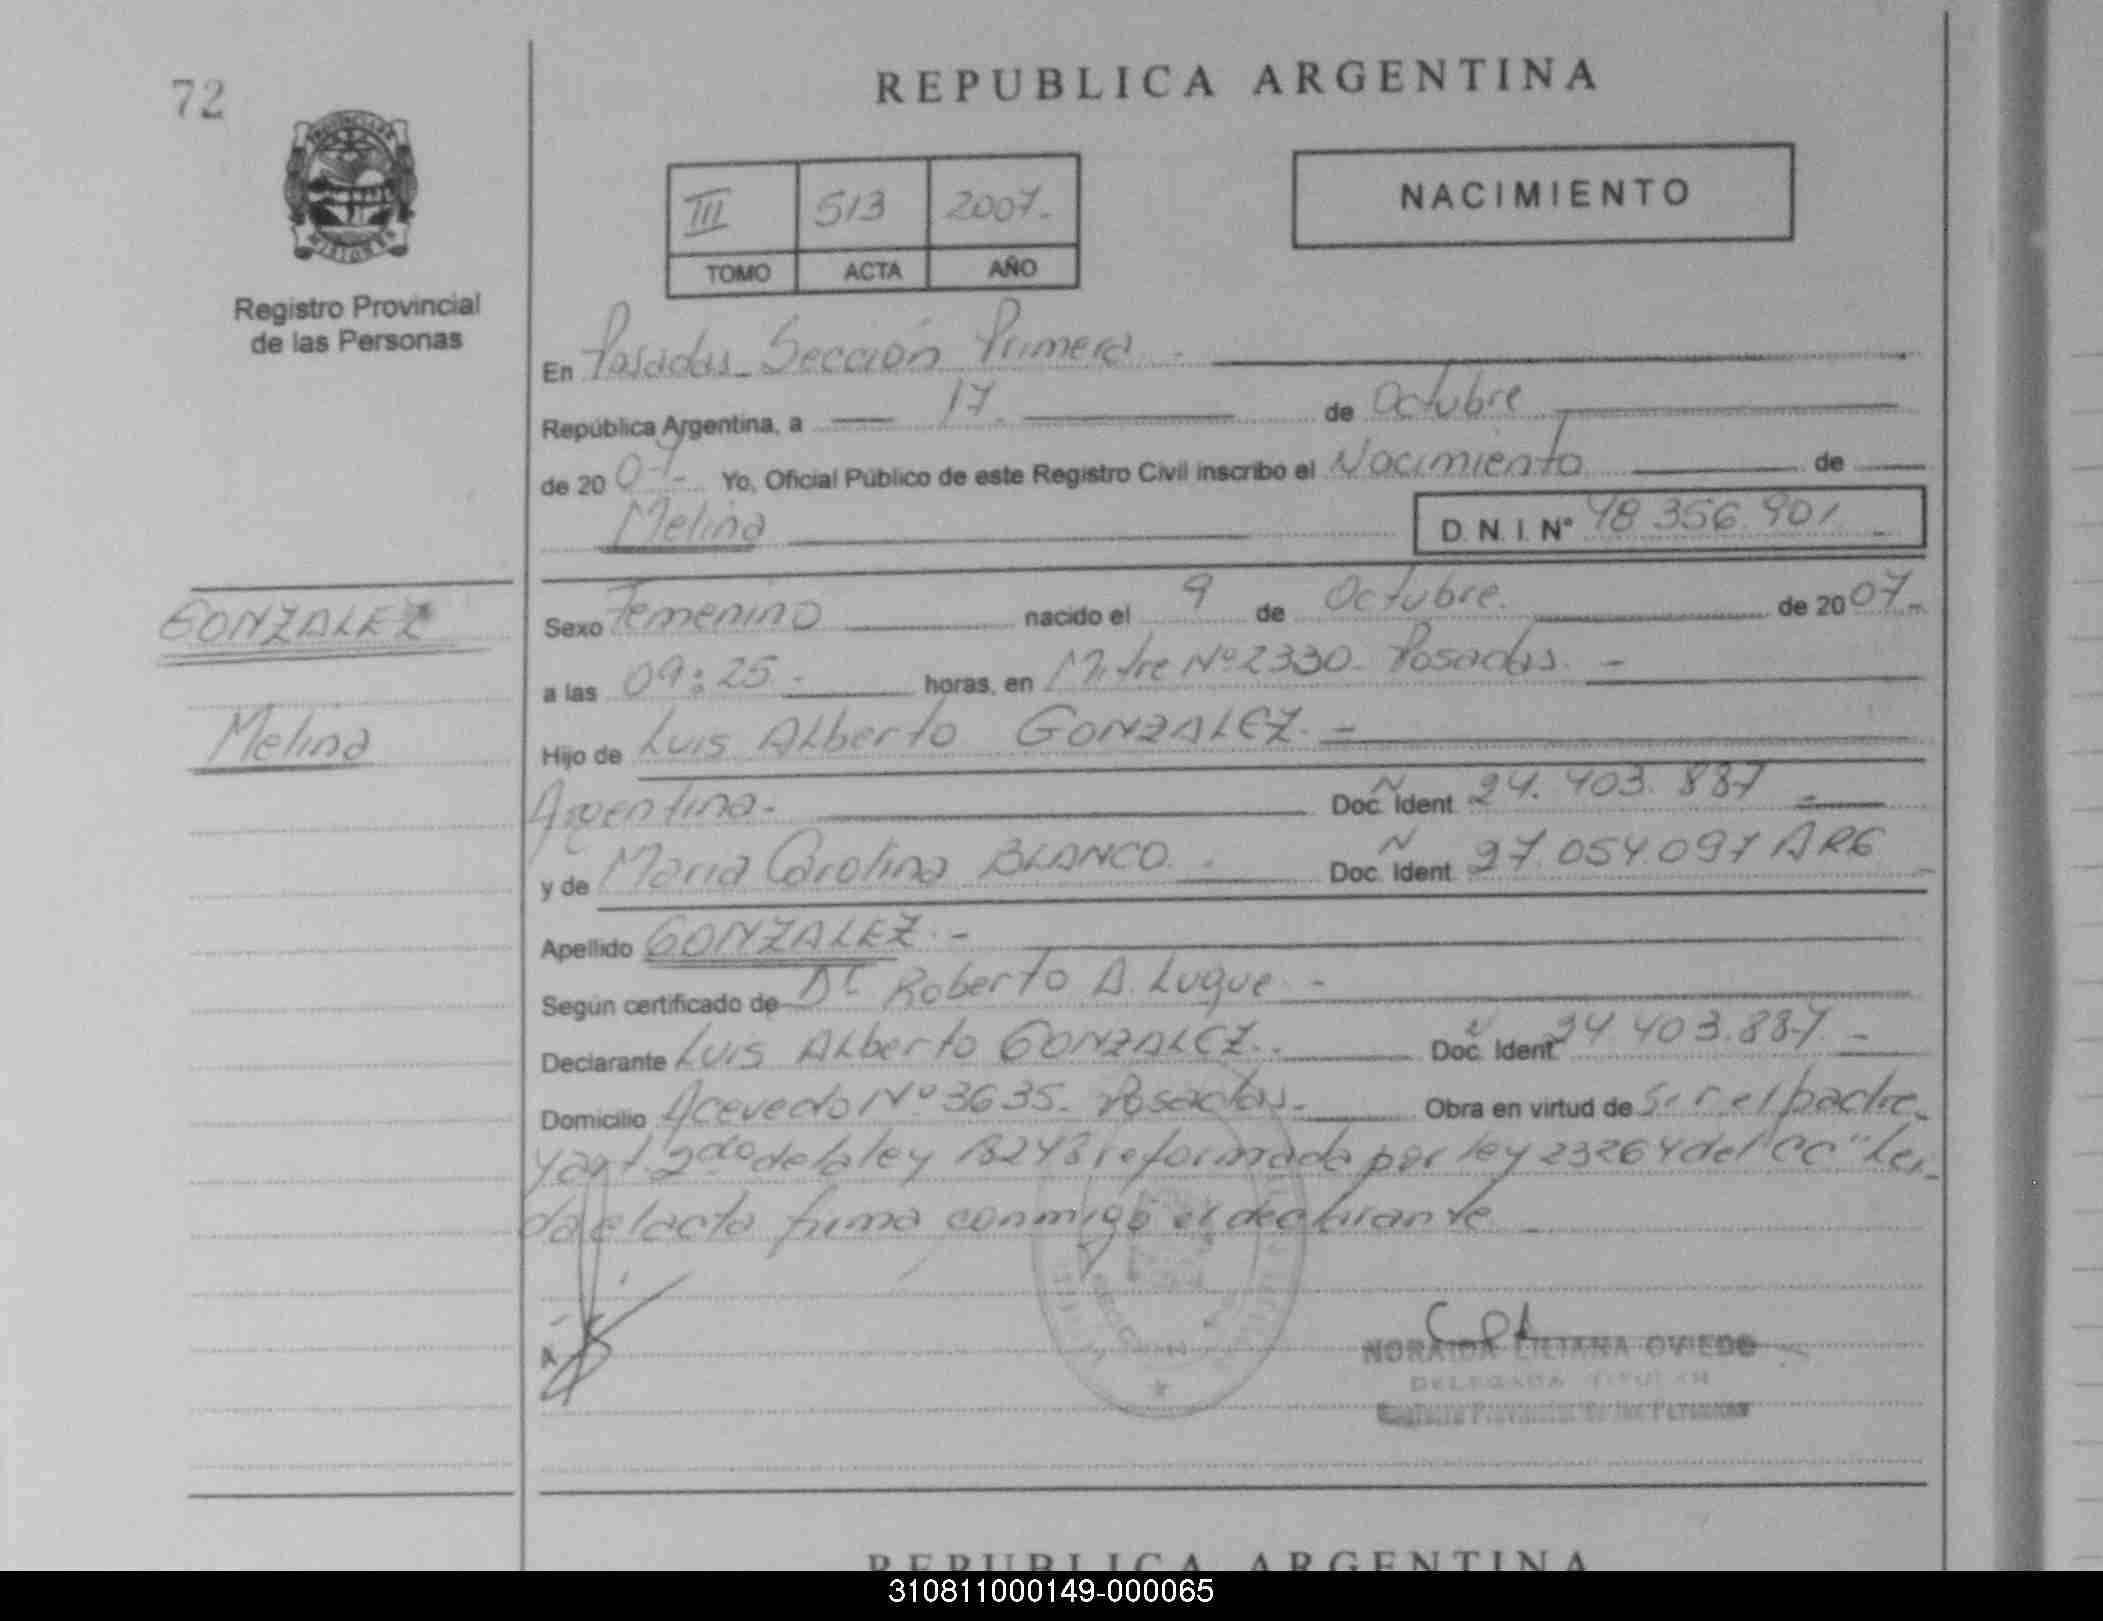 72
REPUBLICA ARGENTINA
PROVINCIA DE
MISIONES
Registro Provincial
de las Personas
III 513 2007.
TOMO ACTA AÑO
NACIMIENTO
En Posadas_Sección Primera.
República Argentina, a 17 de Octubre
de 2007. Yo, Oficial Público de este Registro Civil inscribo el Nacimiento de
Melina D. N. I. N° 48 356 901
GONZALEZ
Sexo Femenino nacido el 9 de Octubre. de 2007.
a las 09:25. horas, en Mitre Nº2330. Posadas.
Melina
Hijo de Luis Alberto GONZALEZ.
Argentina. Doc. Ident N 24.403.887
y de Maria Carolina BLANCO. Doc. Ident N 27.054.097 ARG
Apellido GONZALEZ.
Según certificado de Dr Roberto A. Luque
Declarante Luis Alberto GONZALEZ. Doc. Ident N 24.403.887.
Domicilio Acevedo Nº3635. Posadas. Obra en virtud de Ser el padre
y art. 2do de la ley 18248 reformada por ley 23264 del "CC" Lei
da el acta firma conmigo el declarante
NORAIDA LILIANA OVIEDO
DELEGADA TITULAR
Registro Provincial de las Personas
REPUBLICA ARGENTINA
310811000149-000065